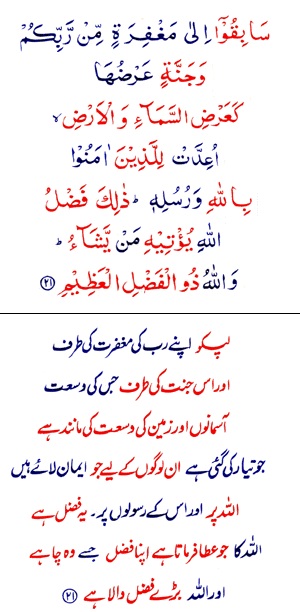 سَابِقُوْٓا اِلٰى مَغْفِرَةٍ مِّنْ رَّبِّكُمْ
وَجَنَّةٍ عَرْضُهَا
كَعَرْضِ السَّمَآءِ وَ الْاَرْضِ ۙ
اُعِدَّتْ لِلَّذِيْنَ اٰمَنُوْا
بِاللّٰهِ وَرُسُلِهٖ ؕ ذٰلِكَ فَضْلُ
اللّٰهِ يُؤْتِيْهِ مَنْ يَّشَآءُ ؕ
وَاللّٰهُ ذُو الْفَضْلِ الْعَظِيْمِ ﴿۲۱﴾
لپکو اپنے رب کی مغفرت کی طرف
اور اس جنت کی طرف جس کی وسعت
آسمانوں اور زمین کی وسعت کی مانند ہے
جو تیار کی گئی ہے ان لوگوں کے لیے جو ایمان لائے ہیں
اللہ پر اور اس کے رسولوں پر۔ یہ فضل ہے
اللہ کا جو عطا فرماتا ہے اپنا فضل جسے وہ چاہے
اور اللہ بڑے فضل والا ہے ﴿۲۱﴾